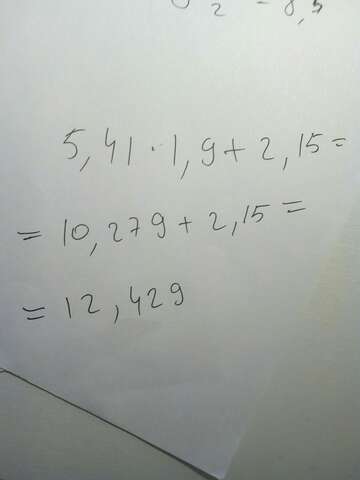 5,41 · 1,9 + 2,15 =
= 10,279 + 2,15 =
= 12,429